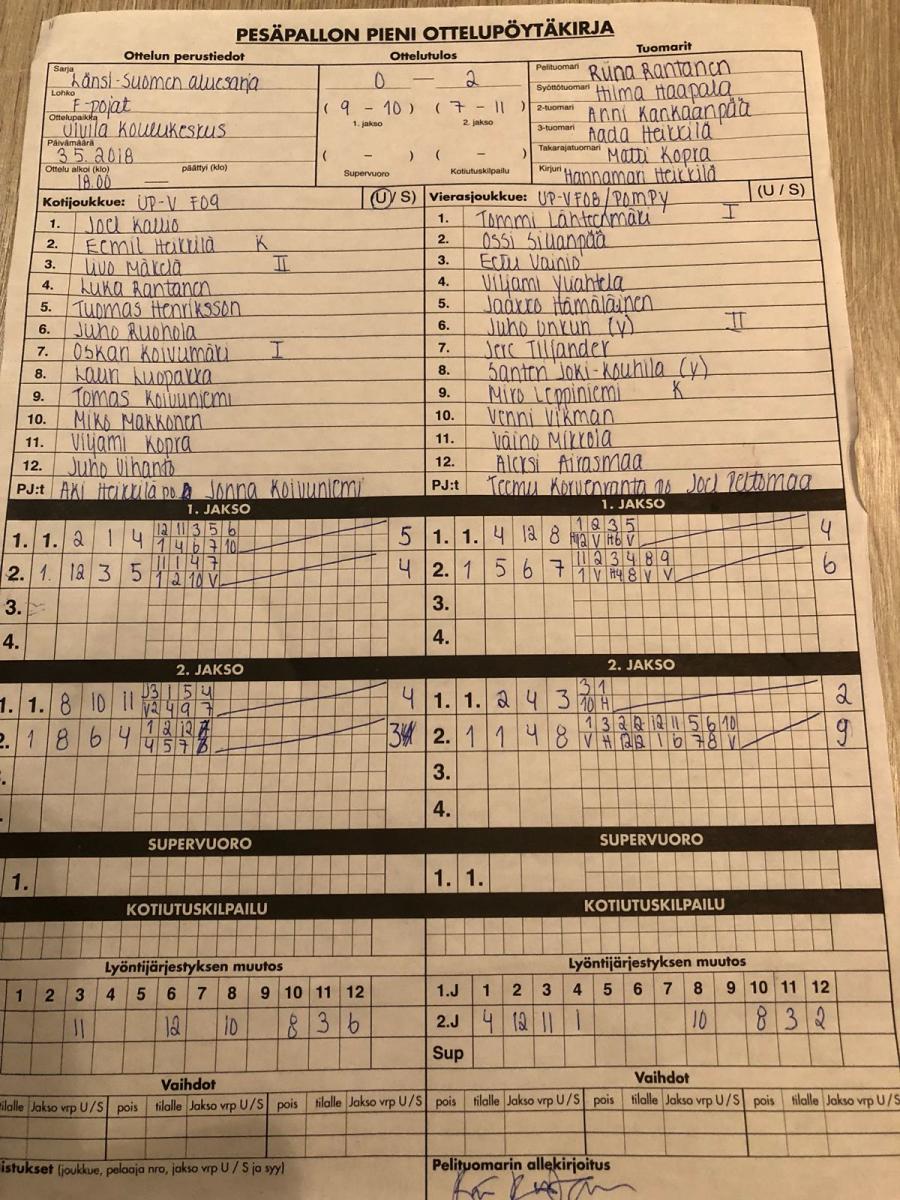 PESÄPALLON PIENI OTTELUPÖYTÄKIRJA
Ottelun perustiedot
Ottelutulos
Tuomarit
Sarja Länsi-Suomen aluesarja
Lohko F-pojat
Ottelupaikka Ulvila Koulukeskus
Päivämäärä 3.5.2018
Ottelu alkoi (klo) 18.00 päättyi (klo) —
0 — 2
( 9 - 10 ) ( 7 - 11 )
1. jakso 2. jakso
( - ) ( - )
Supervuoro Kotiutuskilpailu
Pelituomari Riina Rantanen
Syöttötuomari Hilma Haapala
2-tuomari Anni Kankaanpää
3-tuomari Aada Heikkilä
Takarajatuomari Matti Kopra
Kirjuri Hannamari Heikkilä
Kotijoukkue: UP-V F09 (U / S)
1. Joel Kallio
2. Eemil Heikkilä K
3. Uvo Mäkelä II
4. Luka Rantanen
5. Tuomas Henriksson
6. Juho Ruohola
7. Oskari Koivumäki I
8. Lauri Luopakka
9. Tomas Koivuniemi
10. Miko Makkonen
11. Viljami Kopra
12. Juho Vihanto
PJ:t Aki Heikkilä po Jonna Koivuniemi
Vierasjoukkue: UP-V F08/PomPy (U / S)
1. Tommi Lähteenmäki I
2. Ossi Sillanpää
3. Eetu Vainio
4. Viljami Yliahtela
5. Jaakko Hämäläinen
6. Juho Unkuri (v) II
7. Jere Tiljander
8. Santeri Joki-Kouhila (v)
9. Miro Leppiniemi K
10. Venni Vikman
11. Väinö Mikkola
12. Aleksi Airasmaa
PJ:t Teemu Korvenranta po Joel Peltomaa
1. JAKSO
1. 1. 2 1 4 12 11 3 5 6 5
1 4 6 7 10
2. 1. 12 3 5 11 1 4 7 4
1 2 10 V
3.
4.
1. JAKSO
1. 1. 4 12 8 1 2 3 5 4
H12 V H6 V
2. 1 5 6 7 11 2 3 4 8 9 6
1 V H4 8 V V
3.
4.
2. JAKSO
1. 1. 8 10 11 3 1 5 4 4
V2 4 9 7
2. 1 8 6 4 1 2 12 3
4 5 7
2. JAKSO
1. 1. 2 4 3 3 1 2
10 H
2. 1 1 4 8 1 3 2 2 12 11 5 6 10 9
V H 12 12 1 6 7 8 V
3.
4.
SUPERVUORO
1.
SUPERVUORO
1. 1.
KOTIUTUSKILPAILU
KOTIUTUSKILPAILU
Lyöntijärjestyksen muutos
1 2 3 4 5 6 7 8 9 10 11 12
11 12 10 8 3 6
Lyöntijärjestyksen muutos
1.J 1 2 3 4 5 6 7 8 9 10 11 12
2.J 4 12 11 1 10 8 3 2
Sup
Vaihdot
tilalle Jakso vrp U / S pois tilalle Jakso vrp U / S pois tilalle Jakso vrp U / S
Vaihdot
pois tilalle Jakso vrp U / S pois tilalle Jakso vrp U / S pois tilalle Jakso vrp U / S
istukset (joukkue, pelaaja nro, jakso vrp U / S ja syy)
Pelituomarin allekirjoitus